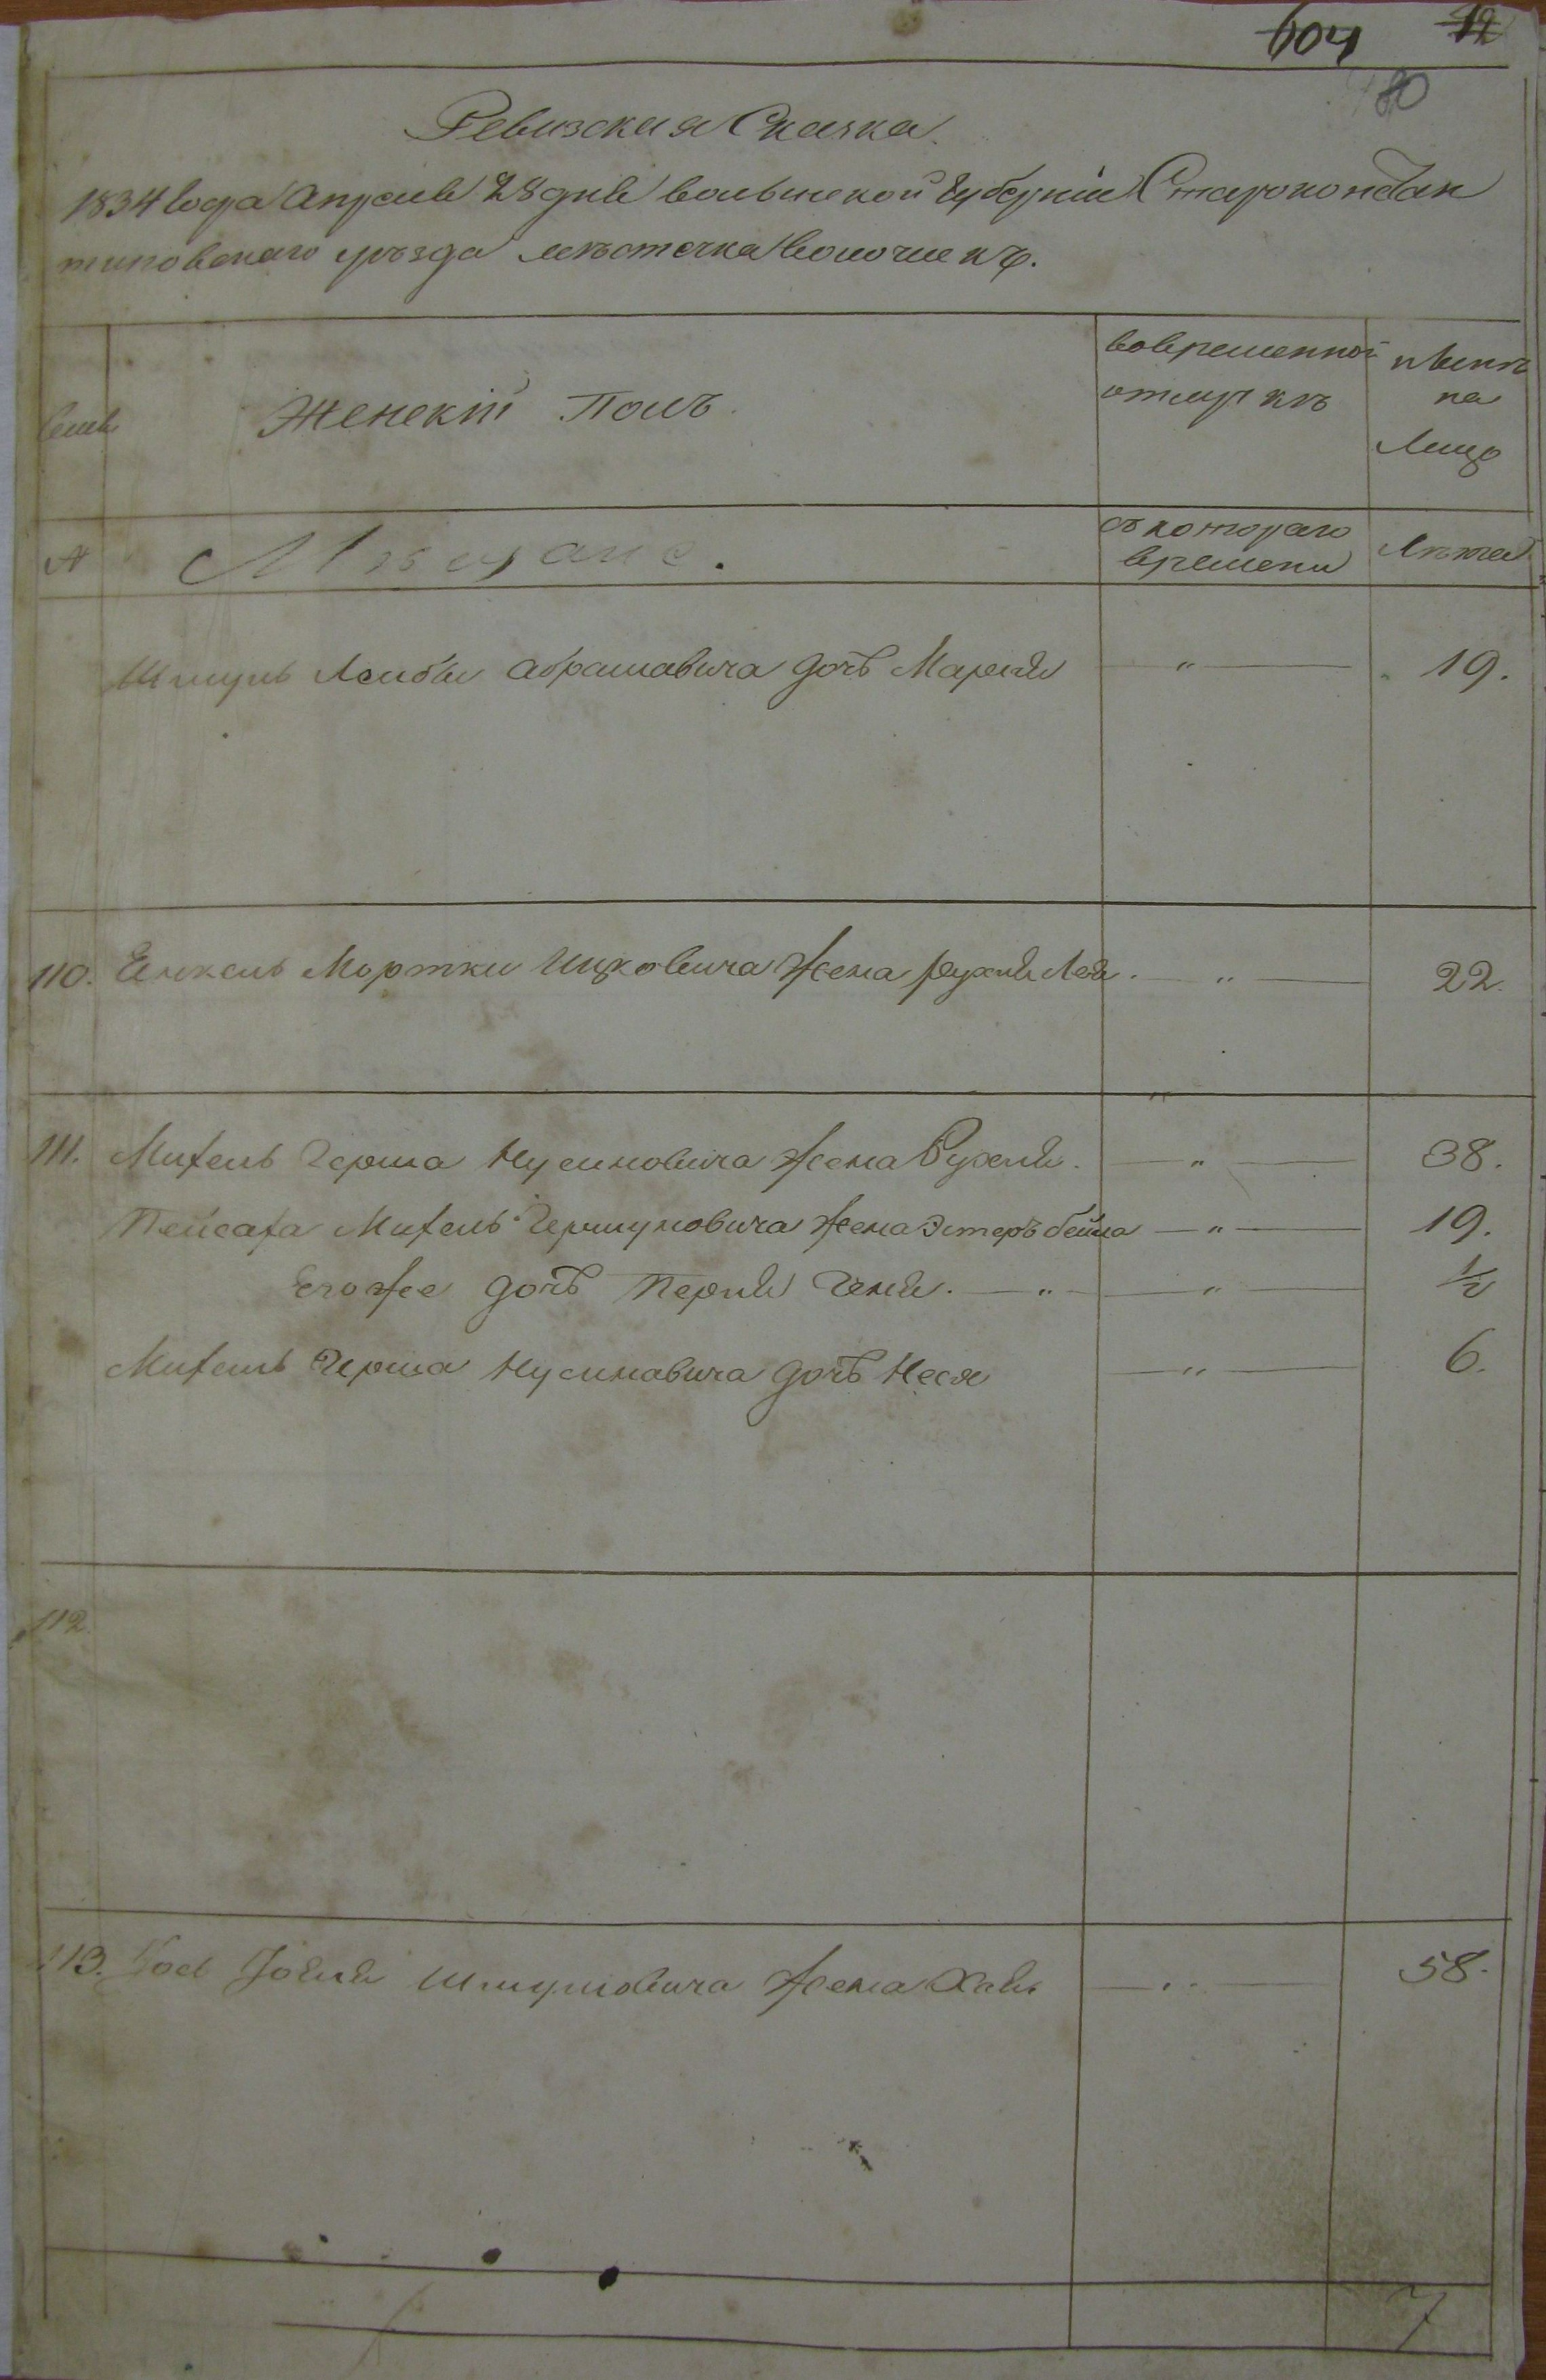 604 12
80
Ревизская Сказка.
1834 Года Апреля 28 дня Волынской Губернии Староконстан
тиновскаго уѣзда мѣстечка Волочискъ.
Семьи Женскій Полъ. Вовременной отлучкѣ Нынѣ на Лицо
№ Мѣщане. съ котораго времени Лѣта
Шмуль Лейбы Абрамовича дочь Маріем " 19.
110. Мортки Ицковича жена Рухля Лея. " 22.
"
111. Михель Герша Нусиновича жена Рухля. " 38.
Пейсаха Михель Гершуновича жена Эстеръ бейла " 19.
Его же дочь Перля Геня. " " 1/2
Михель Герша Нусиновича дочь Неся " 6.
112.
113. Шмулиовича жена Хая " 58.
7